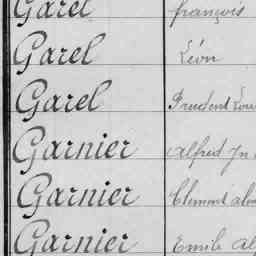 Garel françois
Garel Léon
Garel Prudent Lou
Garnier Alfred Jn
Garnier Clément
Garnier Emile Al